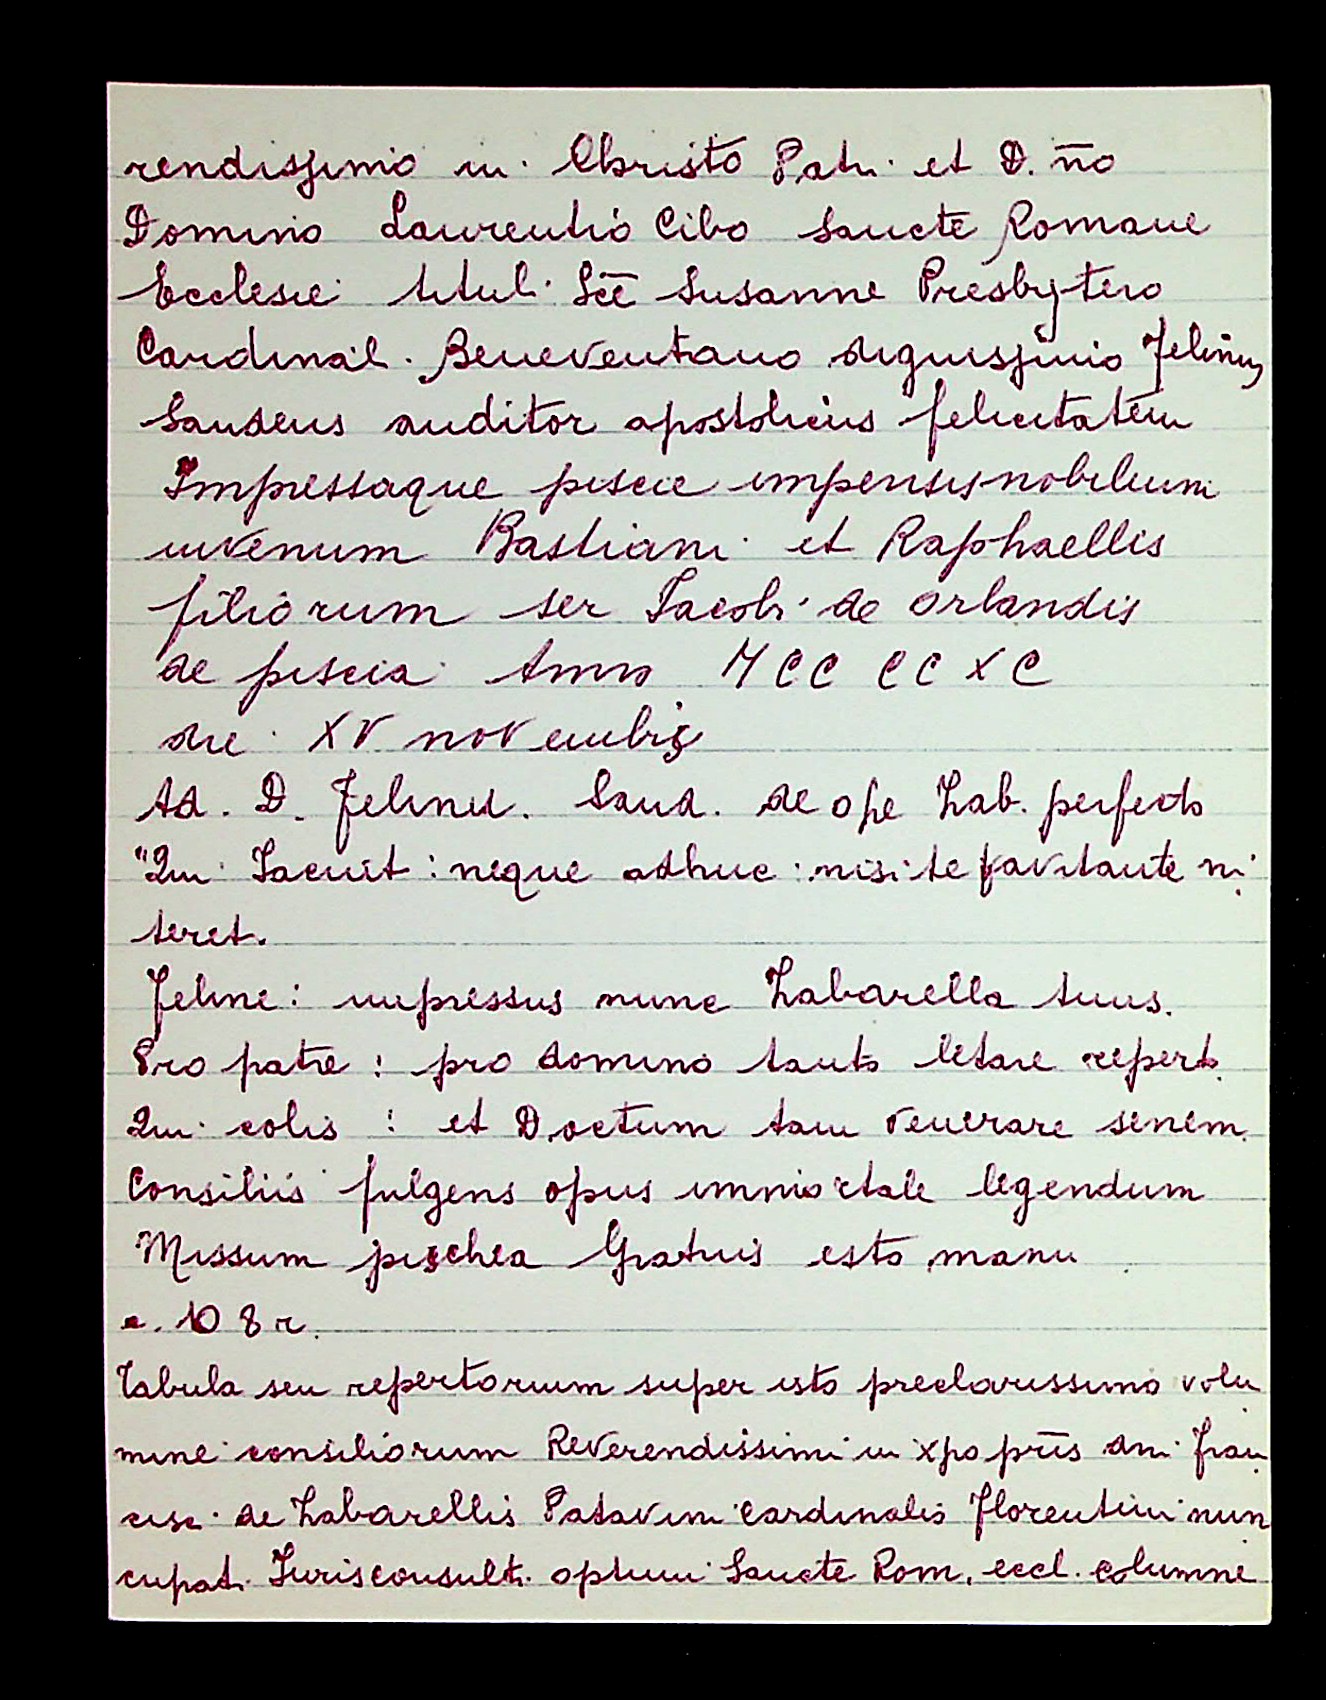 rendissimo in Christo Patri et D. n̄o
Domino Laurentio Cibo sancte Romane
Ecclesie titul. Scē Susanne Presbytero
Cardinal. Beneventano dignissimo Felinus
Sandeus auditor apostolicus felicitatem
Impressaque piscie impensis nobilium
iuvenum Bastiani et Raphaellis
filiorum ser Jacobi de orlandis
de piscia Anno MCC CC XC
die XV novembris
Ad. D. Felinu. Sand. de ope Zab. perfecto
"Qui Jacuit : neque adhuc : nisi te favitante ni
teret.
Feline : impressus nunc Zabarella tuus.
Pro patre : pro domino tanto letare reperto
Qui colis : et Doctum tam venerare senem.
Consiliis fulgens opus immortale legendum
Missum pischea Gratuis esto manu
c. 108 r.
Tabula seu repertorium super isto preclarissimo volu
mine consiliorum Reverendissimi in xpo prīs dni fran
cisc. de Zabarellis Patavini cardinalis Florentini nun
cupati Jurisconsulti optimi Sancte Rom. eccl. columne